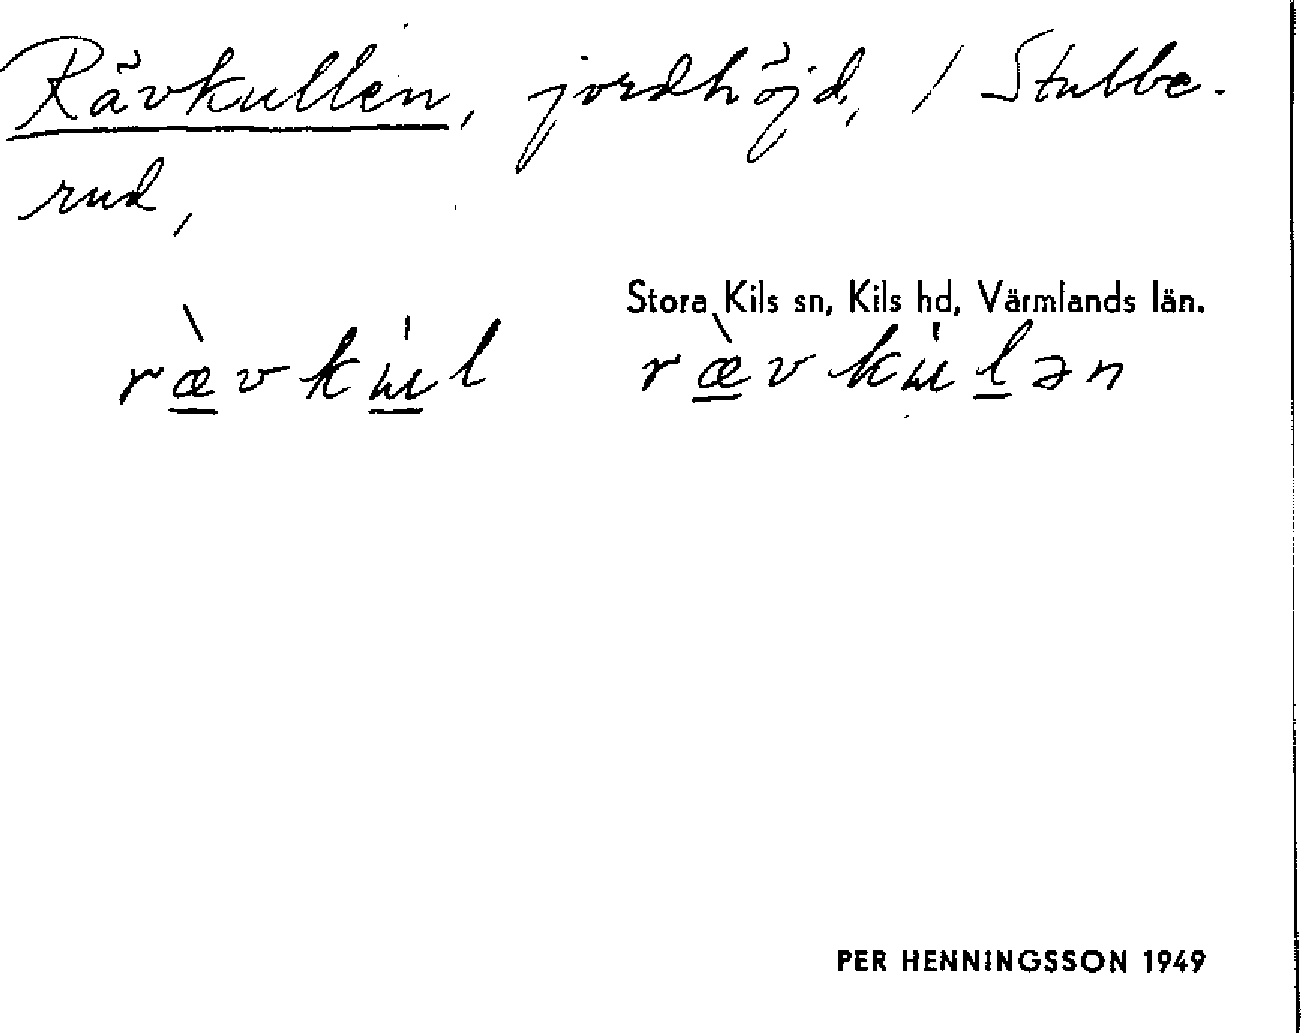 Rävkullen, jordhöjd, / Stubbe-
rud,
Stora Kils sn, Kils hd, Värmlands län.
ræ̀vkɯ̍l ræ̀vkɯ̍lən
PER HENNINGSSON 1949